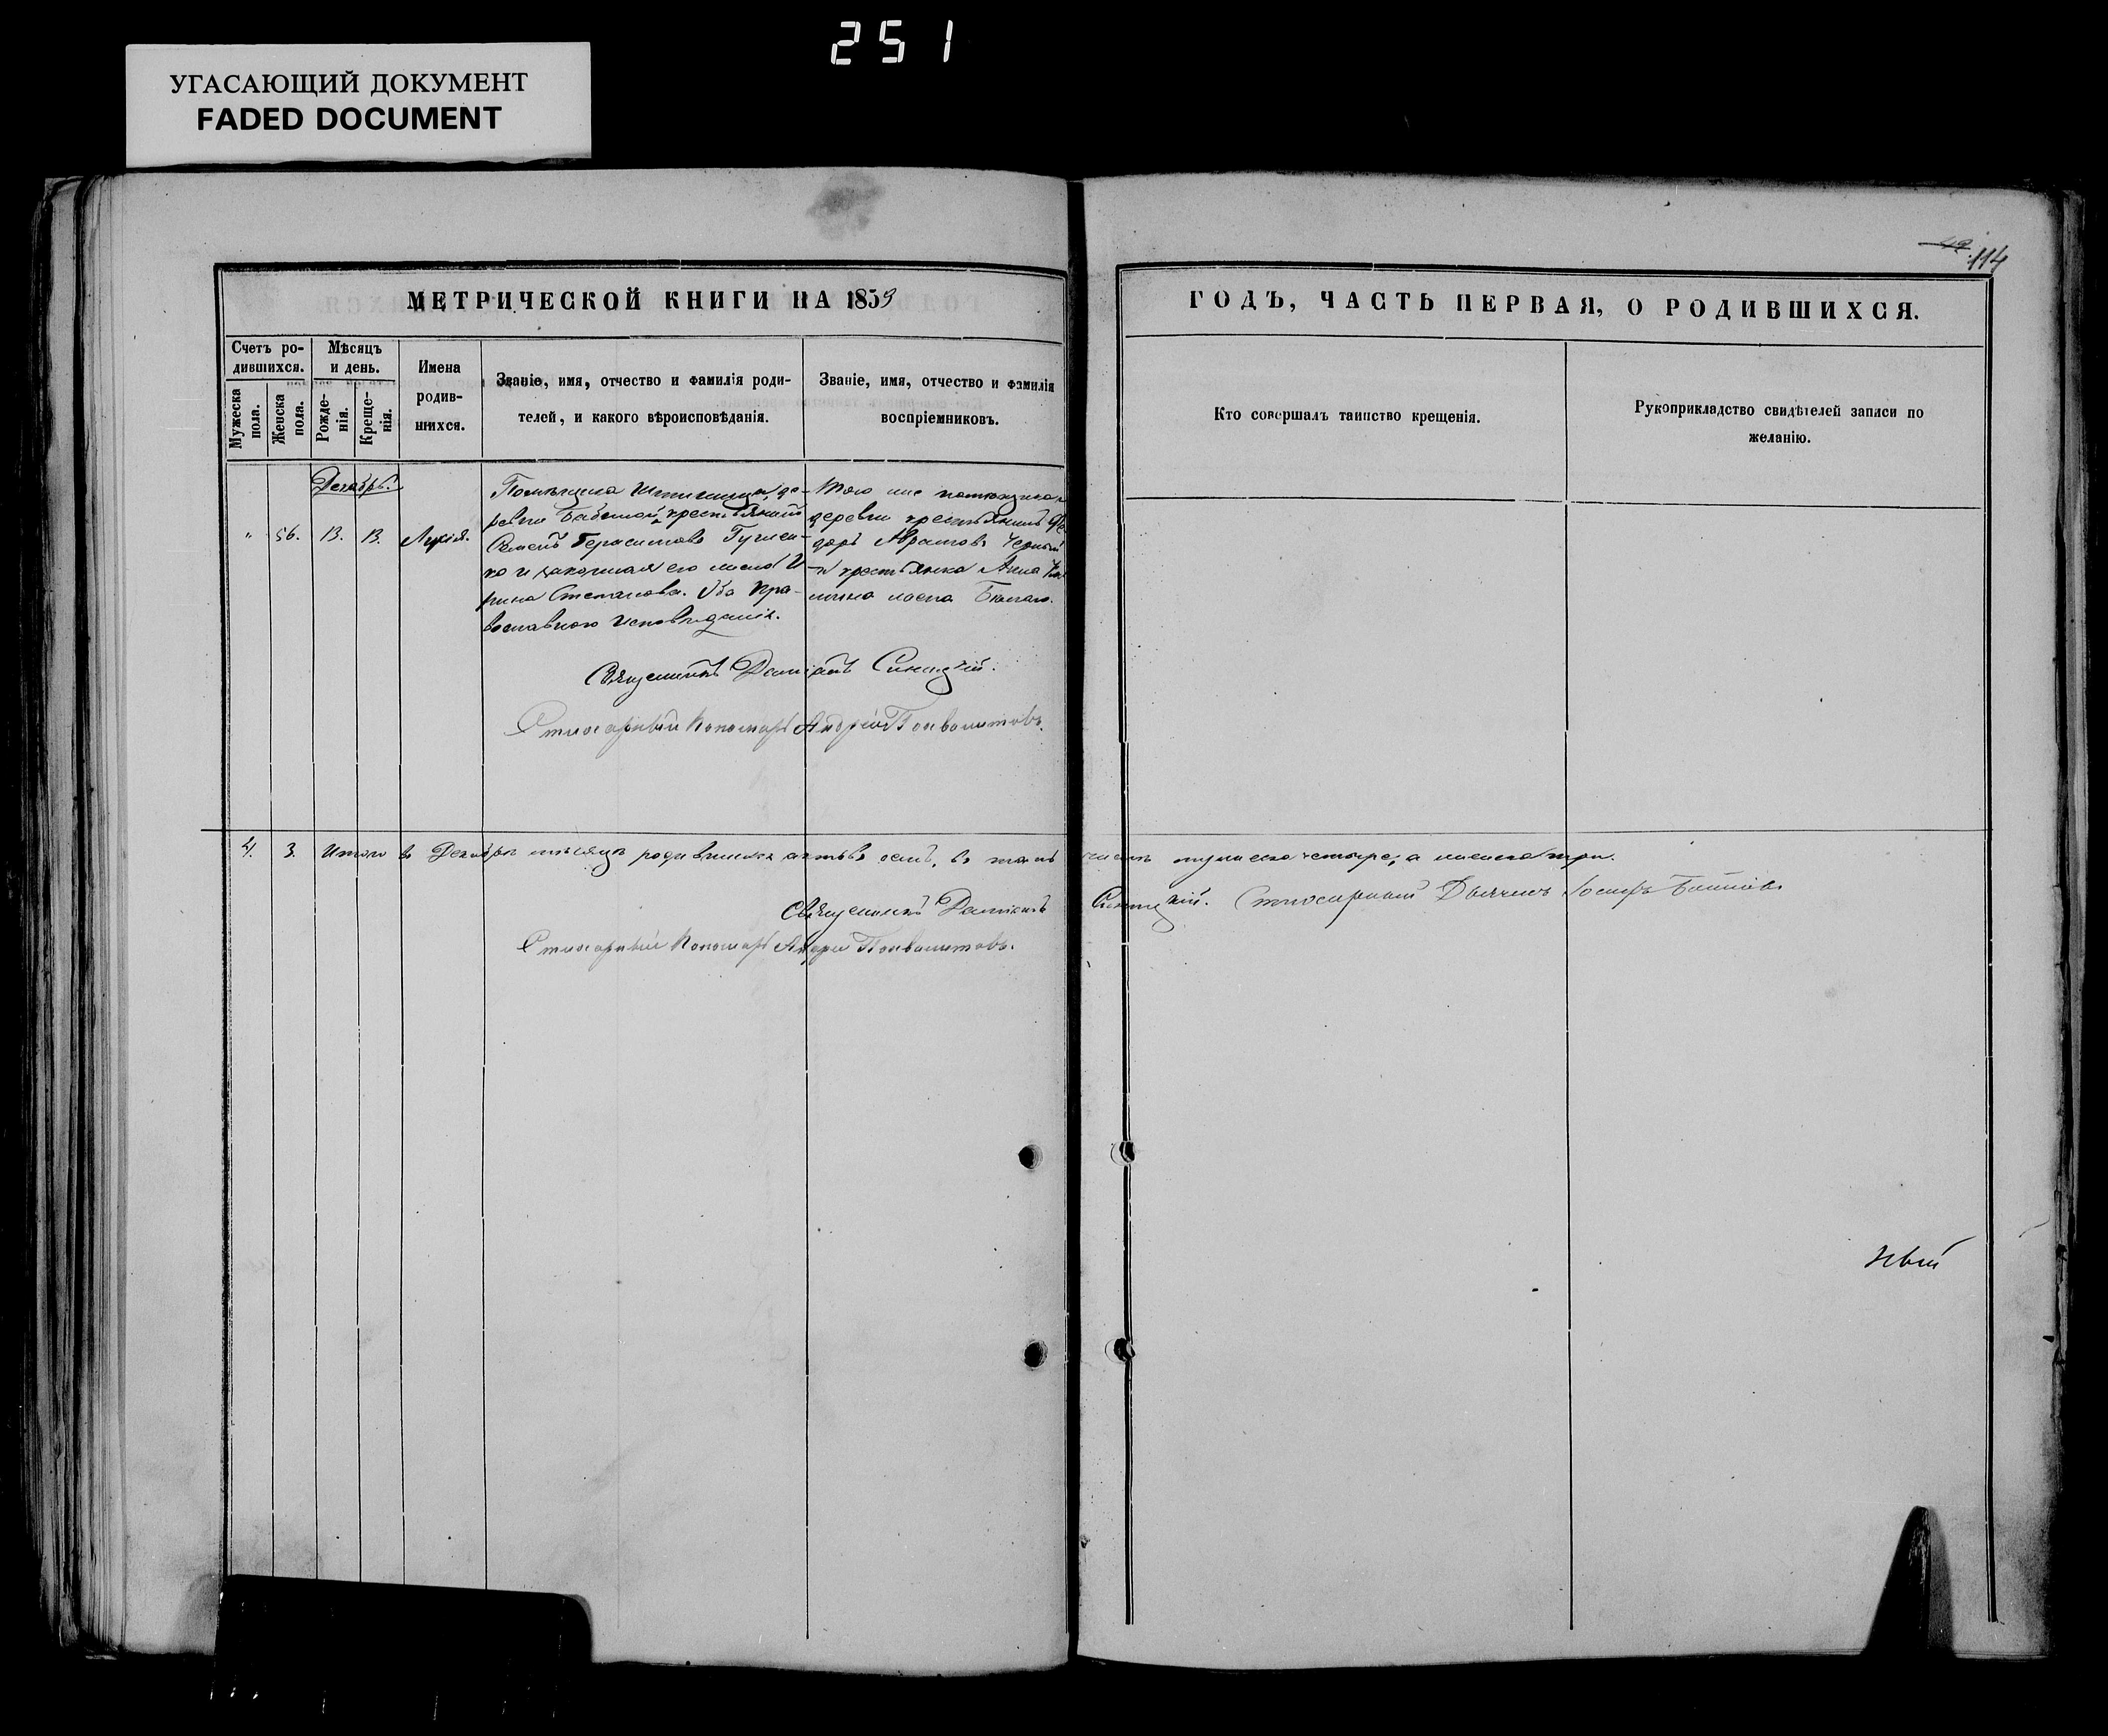 251
УГАСАЮЩИЙ ДОКУМЕНТ
FADED DOCUMENT
114
МЕТРИЧЕСКОЙ КНИГИ НА 1859
ГОДЪ, ЧАСТЬ ПЕРВАЯ, О РОДИВШИХСЯ.
Счетъ ро-
дившихся.
Мужеска
пола.
Женска
пола.
Мѣсяцъ
и день.
Рожде-
нія.
Креще-
нія.
Имена
родив-
шихся.
Званіе, имя, отчество и фамилія роди-
телей, и какого вѣроисповѣданія.
Званіе, имя, отчество и фамилія
воспріемниковъ.
Кто совершалъ таинство крещенія.
Рукоприкладство свидѣтелей записи по
желанію.
Декабрь.
" 56. 13. 13. Лукія.
Помѣщика де-
ревни крестьянинъ
Семенъ Герасимовъ
и законная его жена И-
рина Степанова. Оба пра-
вославнаго исповѣданія.
Того же помѣщика и
деревни крестьянинъ Ѳе-
доръ Абрамовъ Черный
и крестьянка Анна
жена
Священникъ Даміанъ Синицкій.
Стихарный Пономарь Андрей
4. 3. Итого въ Декабрѣ мѣсяцѣ родившихся актовъ семь, въ томъ числѣ мужеска четыре, а женска три.
Священникъ Даміанъ Синицкій. Стихарный Дьячекъ Іосифъ
Стихарный Пономарь Андрей